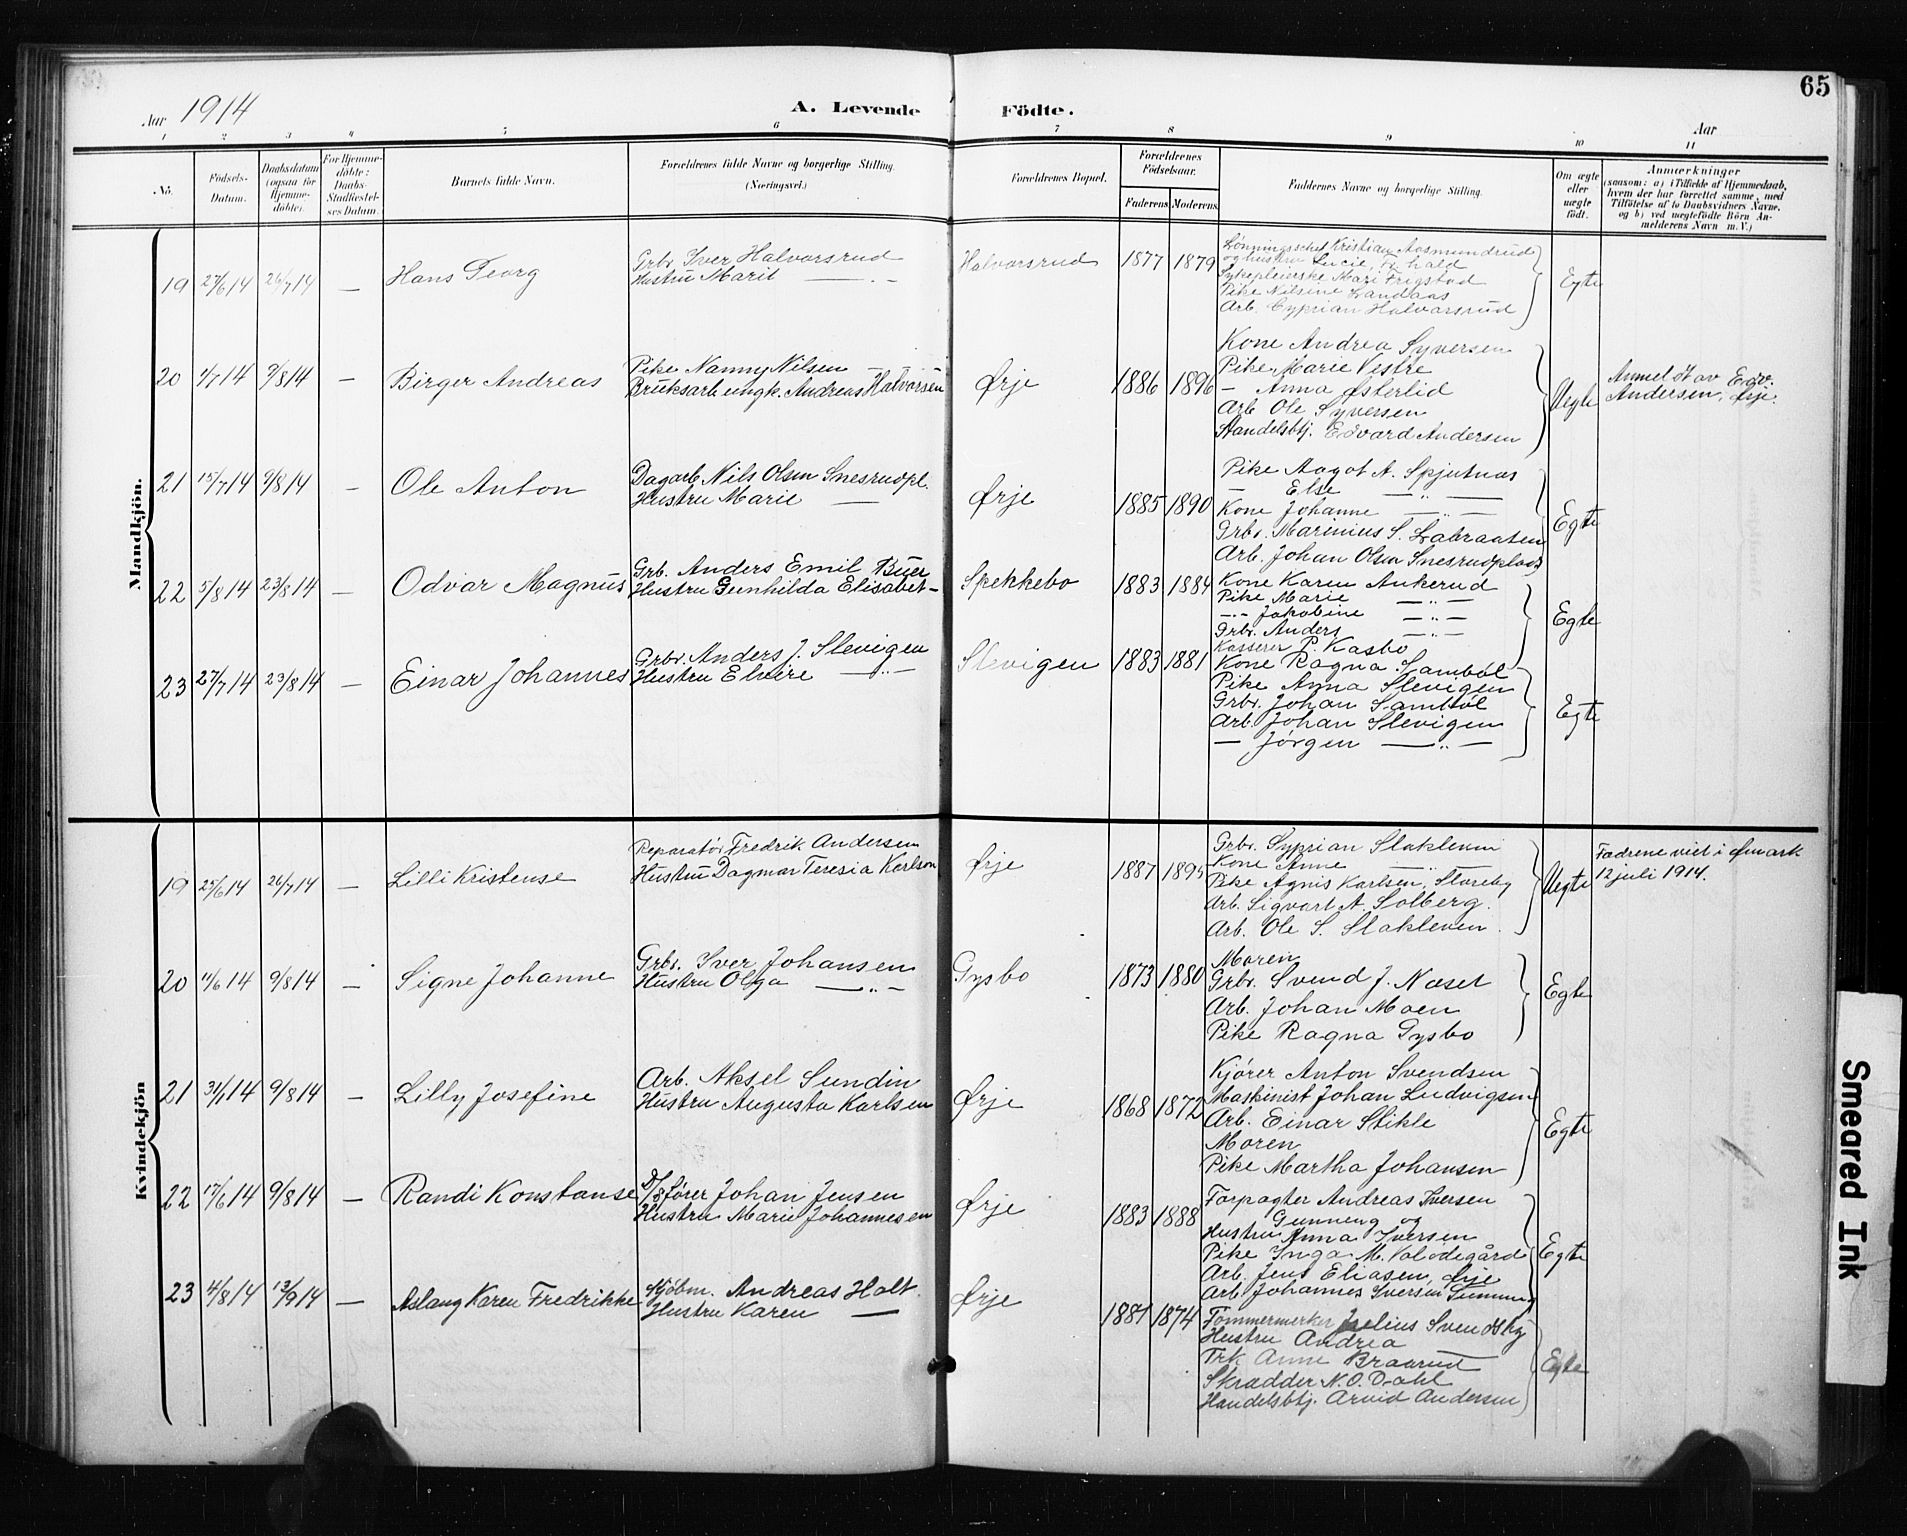 65
Aar 1914
A. Levende Födte.
Aar
1 2 3 4 5 6 7 8 9 10 11
No.
Födsels-Datum.
Daabsdatum (ogsaa for Hjemmedöbte).
For Hjemmedöbte: Daabs-Stadfæstelses Datum.
Barnets fulde Navn.
Forældrenes fulde Navne og borgerlige Stilling. (Næringsvei.)
Forældrenes Bopæl.
Forældrenes Födselsaar.
Faderens Moderens
Faddernes Navne og borgerlige Stilling.
Om ægte eller uægte födt.
Anmærkninger
(saasom: a) i Tilfælde af Hjemmedaab, hvem der har forrettet samme, med Tilföielse af to Daabsvidners Navne, og b) ved uægtefödte Börn Anmelderens Navn m. V.)
Mandkjön.
19 27/6 14 26/7 14 — Hans Georg
Grbr. Iver Halvorsrud
Hustru Marit —„—
Halvorsrud 1877 1879
Lønningschef Kristian Aasmundrud
og hustru Lucie, Fr.hald
Sykepleierske Mari Frigstad
Pike Nilsine Sandaas
Arb. Cyprian Halvorsrud
Egte
20 1/7 14 9/8 14 — Birger Andreas
Pike Nanny Nilsen
Bruksarb. ungk. Andreas Halvorsen
Ørje 1886 1896
Kone Andrea Syversen
Pike Marie Vestre
— Anna Østerlid
Arb. Ole Syversen
Handelsbtj. Edvard Andersen
Uegte
Anmeldt av Edv.
Andersen, Ørje.
21 15/7 14 9/8 14 — Ole Anton
Dagarb. Nils Olsen Snesrudpl.
Hustru Marie —
Ørje 1885 1890
Pike Aagot A. Spjutnæs
— Else —„—
Kone Johanne —„—
Grbr. Marinius S. Labraaten
Arb. Johan Olsen Snesrudplads
Egte
22 5/8 14 23/8 14 — Odvar Magnus
Grb. Anders Emil Buer
Hustru Gunhilda Elisabet —
Spekkebo 1883 1884
Kone Karen Ankerud
Pike Marie —„—
—„— Jakobine —„—
Grbr. Anders —„—
Kasserer P. Kasbo
Egte
23 27/7 14 23/8 14 — Einar Johannes
Grbr. Anders J. Slevigen
Hustru Elvire —„—
Slevigen 1883 1881
Kone Ragna Sambøl
Pike Anna Slevigen
Grbr. Johan Sambøl
Arb. Johan Slevigen
— Jørgen —„—
Egte
Kvindekjön
19 25/6 14 26/7 14 — Lilli Kristense
Reparatør Fredrik Andersen
Hustru Dagmar Teresia Karlson
Ørje 1887 1895
Grbr. Syprian Stakleven
Kone Anne —„—
Pike Agnis Karlsen, Storeby
Arb. Sigvart A. Solberg.
Arb. Ole S. Stakleven.
Uegte
Fædrene viet i Ømark
12 juli 1914.
20 11/6 14 9/8 14 — Signe Johanne
Grbr. Iver Johansen
Hustru Olga —„—
Gysbo 1873 1880
Moren
Grbr. Svend J. Næset
Arb. Johan Moen
Pike Ragna Gysbo
Egte
21 31/1 14 9/8 14 — Lilly Josefine
Arb. Aksel Sundin
Hustru Augusta Karlsen
Ørje 1868 1872
Kjører Anton Svendsen
Maskinist Johan Ludvigsen
Arb. Einar Stikle
Moren
Pike Martha Johansen
Egte
22 17/6 14 9/8 14 — Randi Konstanse
D/S fører Johan Jensen
Hustru Marie Johannesen
Ørje 1883 1888
Forpagter Andreas Iversen
Gunneng og
Hustru Anna Iversen
Pike Inga M. Volodegård
Arb. Jens Eliasen, Ørje
Arb. Johannes Iversen
Egte
23 4/8 14 13/9 14 — Aslaug Karen Fredrikke
Kjøbm. Andreas Holt.
Hustru Karen —
Ørje 1881 1874
Tømmermerker Julius Svendsby
Hustru Andrea —
Frk Anne Braarud
Skrædder N.O. Dahl
Handelsbtj. Arvid Andersen
Egte
Smeared Ink